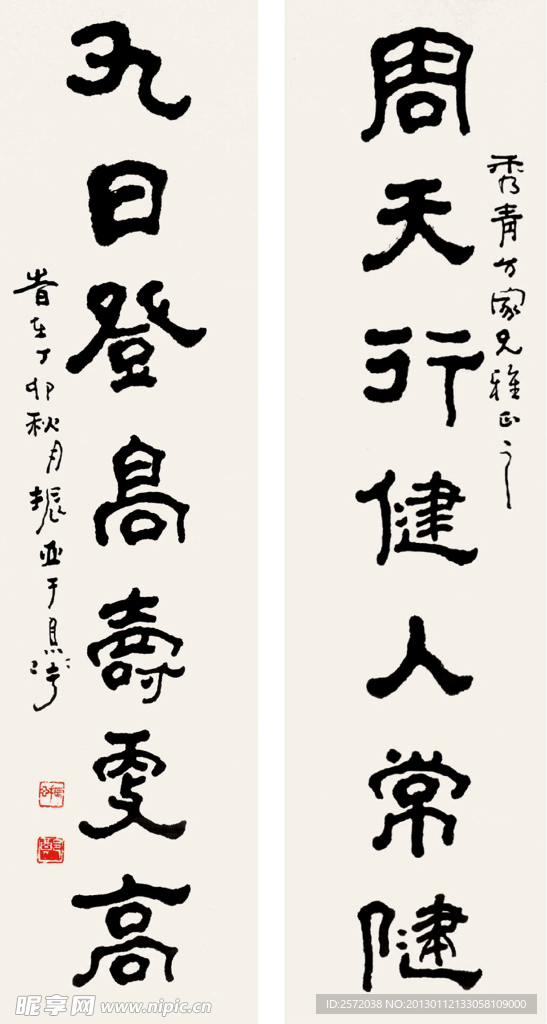 周天行健人常健
秀青方家兄雅正之
九日登高壽更高
昔在丁卯秋月振亚于
昵享网 www.nipic.cn
ID:2572038 NO:20130112133058109000